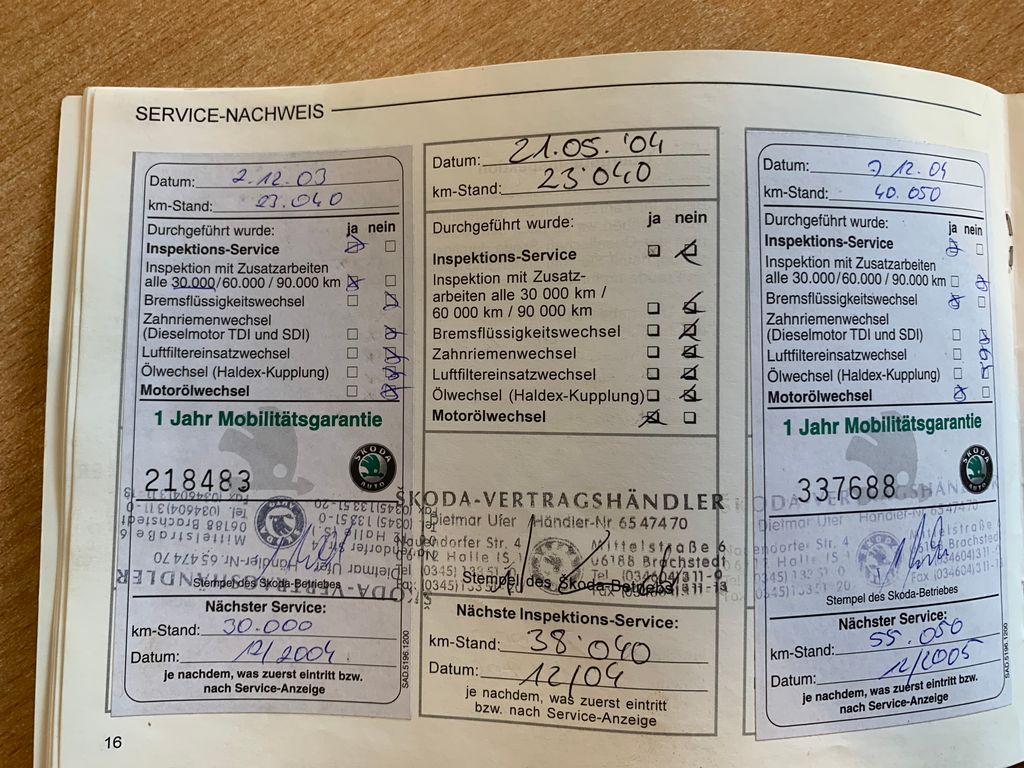 SERVICE-NACHWEIS
Datum: 2.12.03
km-Stand: 23.040
Durchgeführt wurde: ja nein
Inspektions-Service
Inspektion mit Zusatzarbeiten
alle 30.000/60.000 / 90.000 km
Bremsflüssigkeitswechsel
Zahnriemenwechsel
(Dieselmotor TDI und SDI)
Luftfiltereinsatzwechsel
Ölwechsel (Haldex-Kupplung)
Motorölwechsel
1 Jahr Mobilitätsgarantie
SKODA
AUTO
218483
SKODA-VERTRAGSHÄNDLER
Dietmar Ufer Händler-Nr. 65 47470
Mittelstraße 6
06188 Brachstedt
Stempel des Skoda-Betriebes
Nächster Service:
km-Stand: 30.000
Datum: 12/2004
je nachdem, was zuerst eintritt bzw.
nach Service-Anzeige
SAD.5196.1200
Datum: 21.05.'04
km-Stand: 23'040
Durchgeführt wurde: ja nein
Inspektions-Service
Inspektion mit Zusatz-
arbeiten alle 30 000 km /
60 000 km / 90 000 km
Bremsflüssigkeitswechsel
Zahnriemenwechsel
Luftfiltereinsatzwechsel
Ölwechsel (Haldex-Kupplung)
Motorölwechsel
SKODA-VERTRAGSHÄNDLER
Dietmar Ufer Händler-Nr 65 47470
Nauendorfer Str. 4 Mittelstraße 6
Halle (S.) 06188 Brachstedt
Tel. (034604) 311-0
Fax (034604) 311-13
Stempel des Skoda-Betriebs
Nächste Inspektions-Service:
km-Stand: 38'040
Datum: 12/04
je nachdem, was zuerst eintritt
bzw. nach Service-Anzeige
Datum: 7 12.04
km-Stand: 40.050
Durchgeführt wurde: ja nein
Inspektions-Service
Inspektion mit Zusatzarbeiten
alle 30.000/60.000 / 90.000 km
Bremsflüssigkeitswechsel
Zahnriemenwechsel
(Dieselmotor TDI und SDI)
Luftfiltereinsatzwechsel
Ölwechsel (Haldex-Kupplung)
Motorölwechsel
1 Jahr Mobilitätsgarantie
SKODA
AUTO
337688
SKODA-VERTRAGSHÄNDLER
Dietmar Ufer Händler-Nr. 65 47470
Nauendorfer Str. 4 Mittelstraße 6
06188 Brachstedt
Tel. (034604) 311-0
Fax (034604) 311-13
Stempel des Skoda-Betriebes
Nächster Service:
km-Stand: 55.050
Datum: 12/2005
je nachdem, was zuerst eintritt bzw.
nach Service-Anzeige
SAD.5196.1200
16